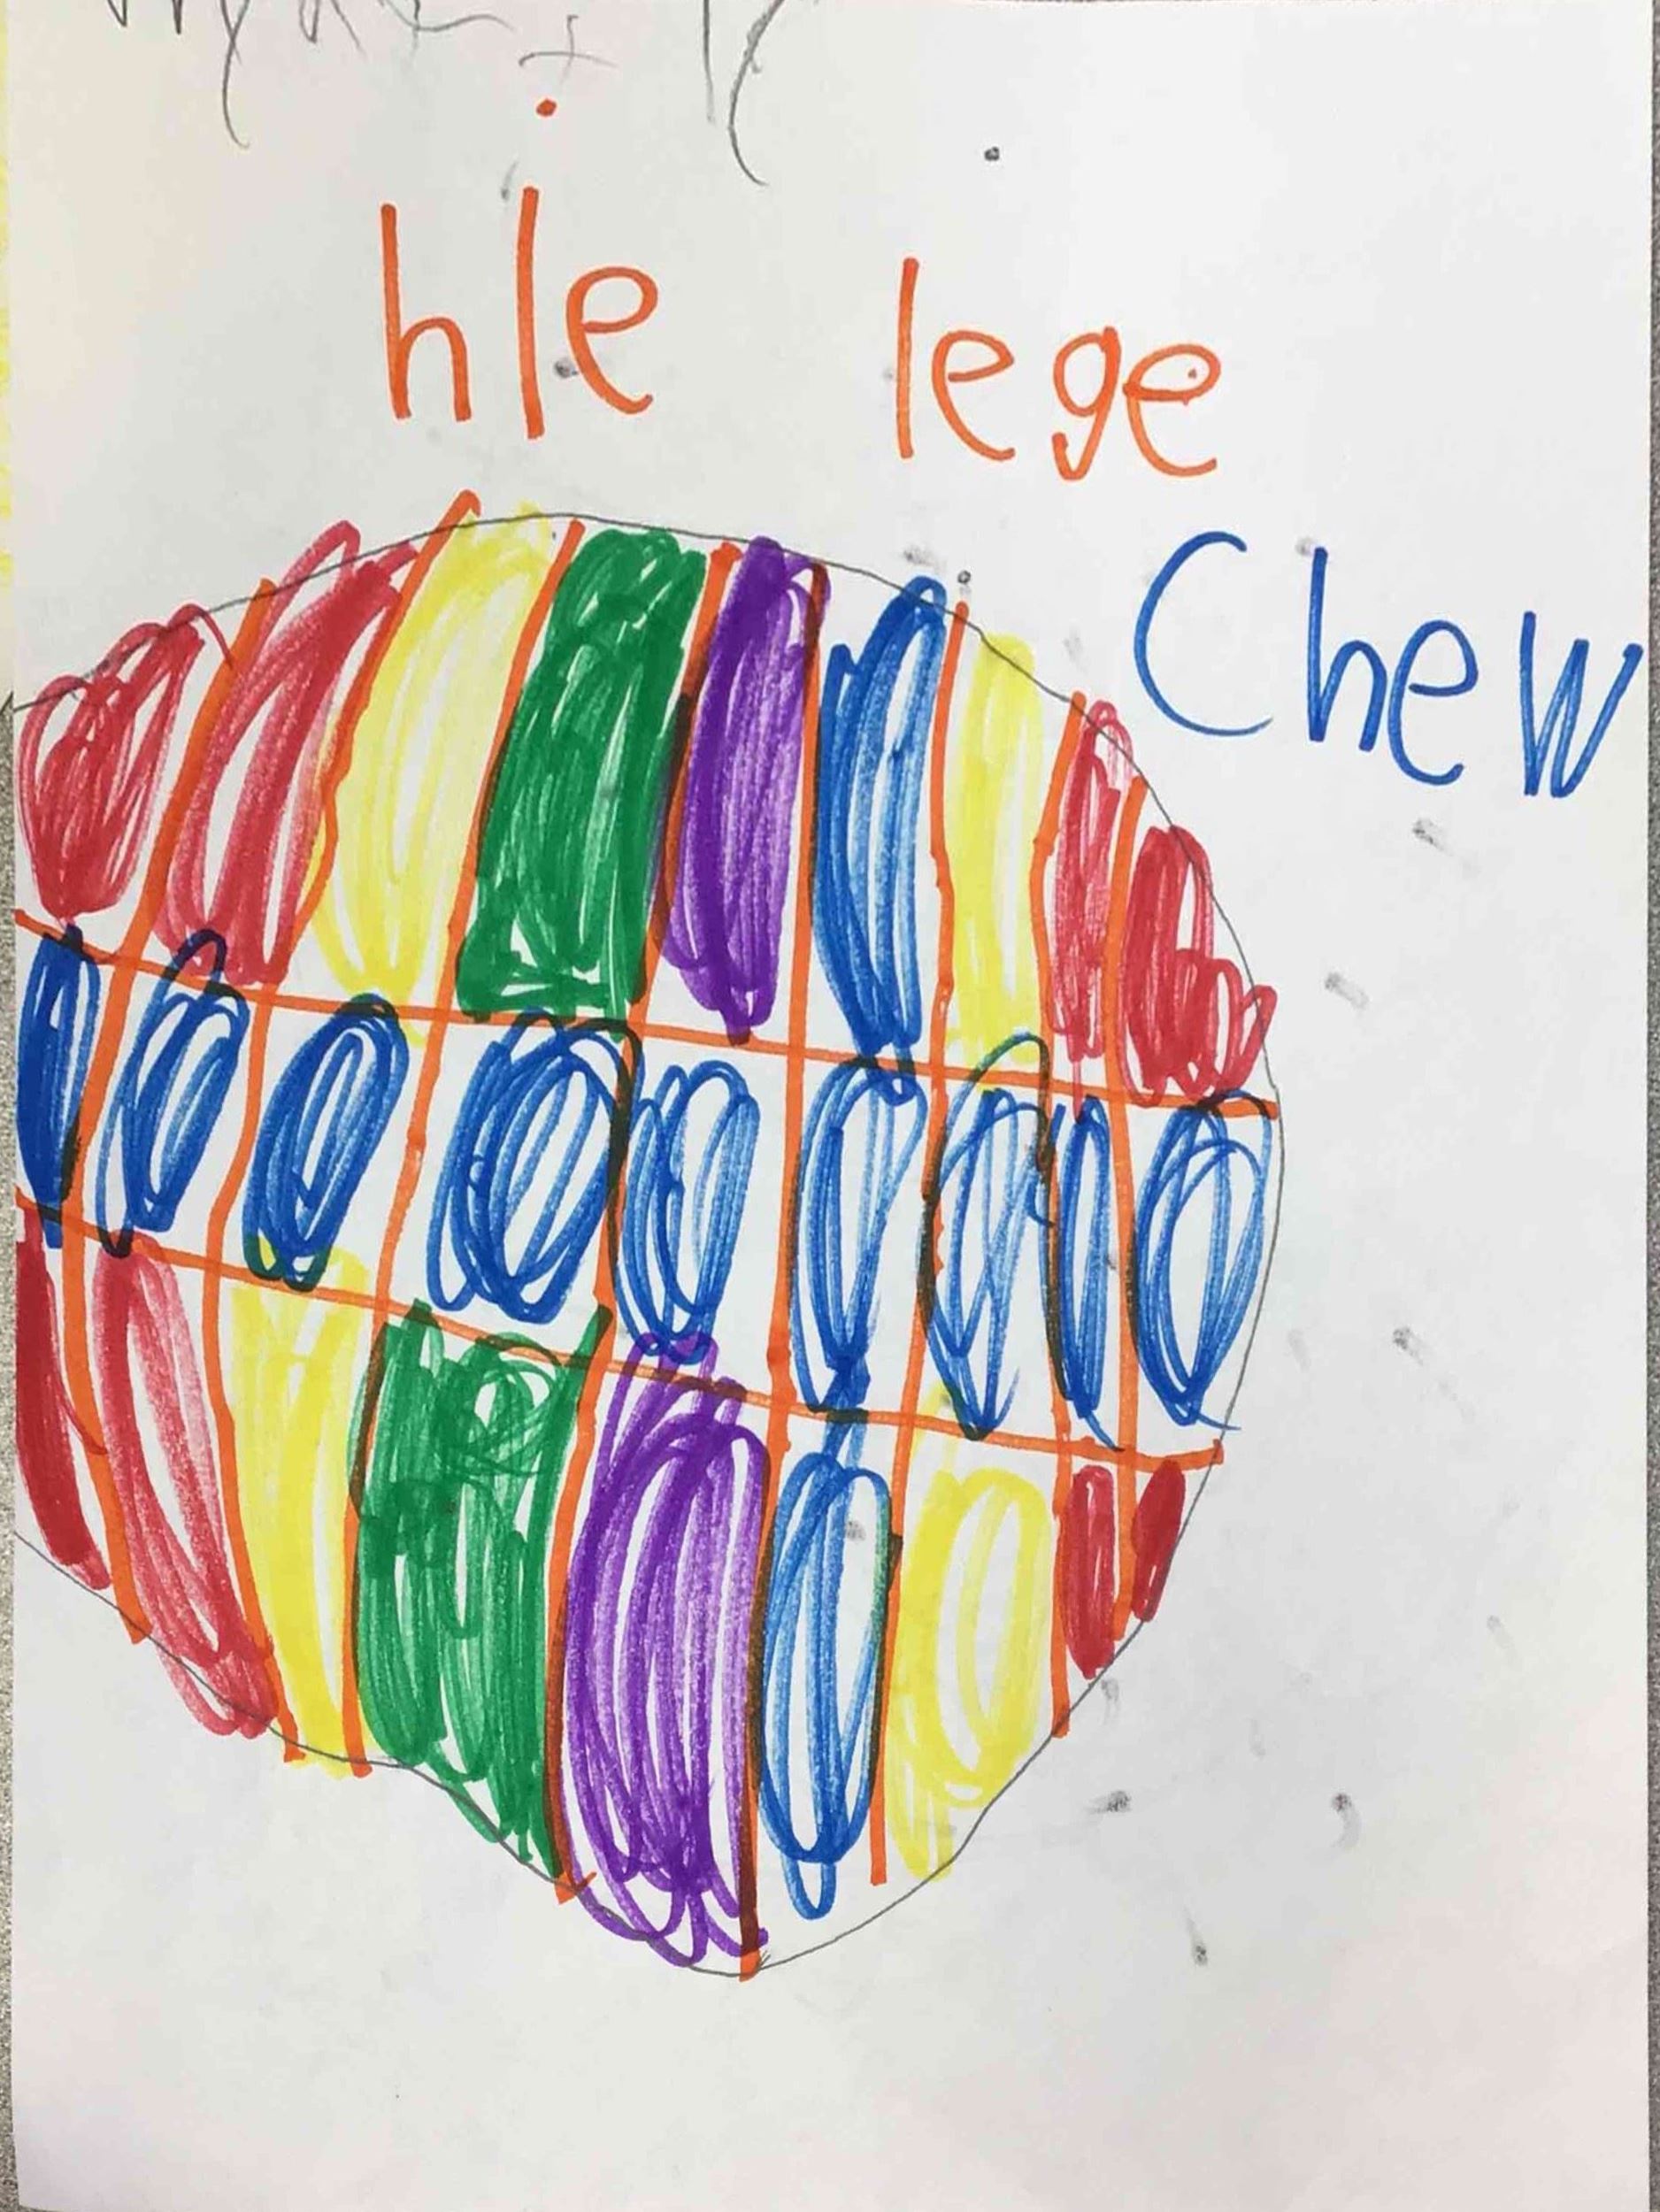 hle lege
Chew